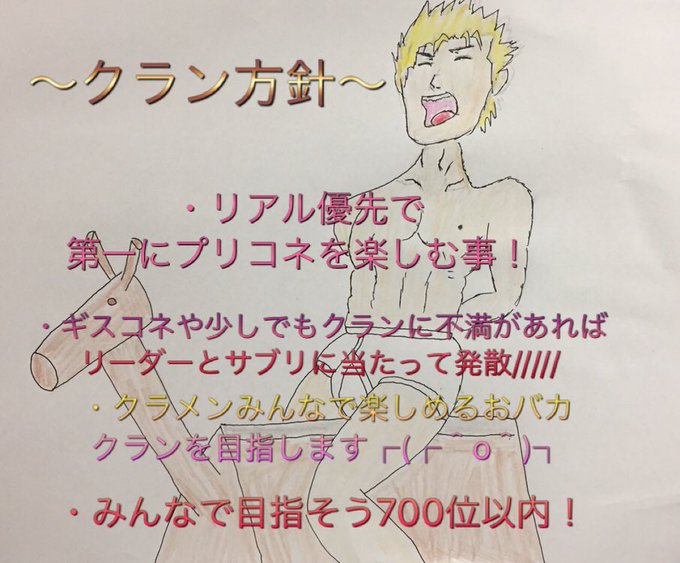 ～クラン方針～
・リアル優先で
第一にプリコネを楽しむ事！
・ギスコネや少しでもクランに不満があれば
リーダーとサブリに当たって発散/////
・クラメンみんなで楽しめるおバカ
クランを目指します┌(┌＾o＾)┐
・みんなで目指そう700位以内！